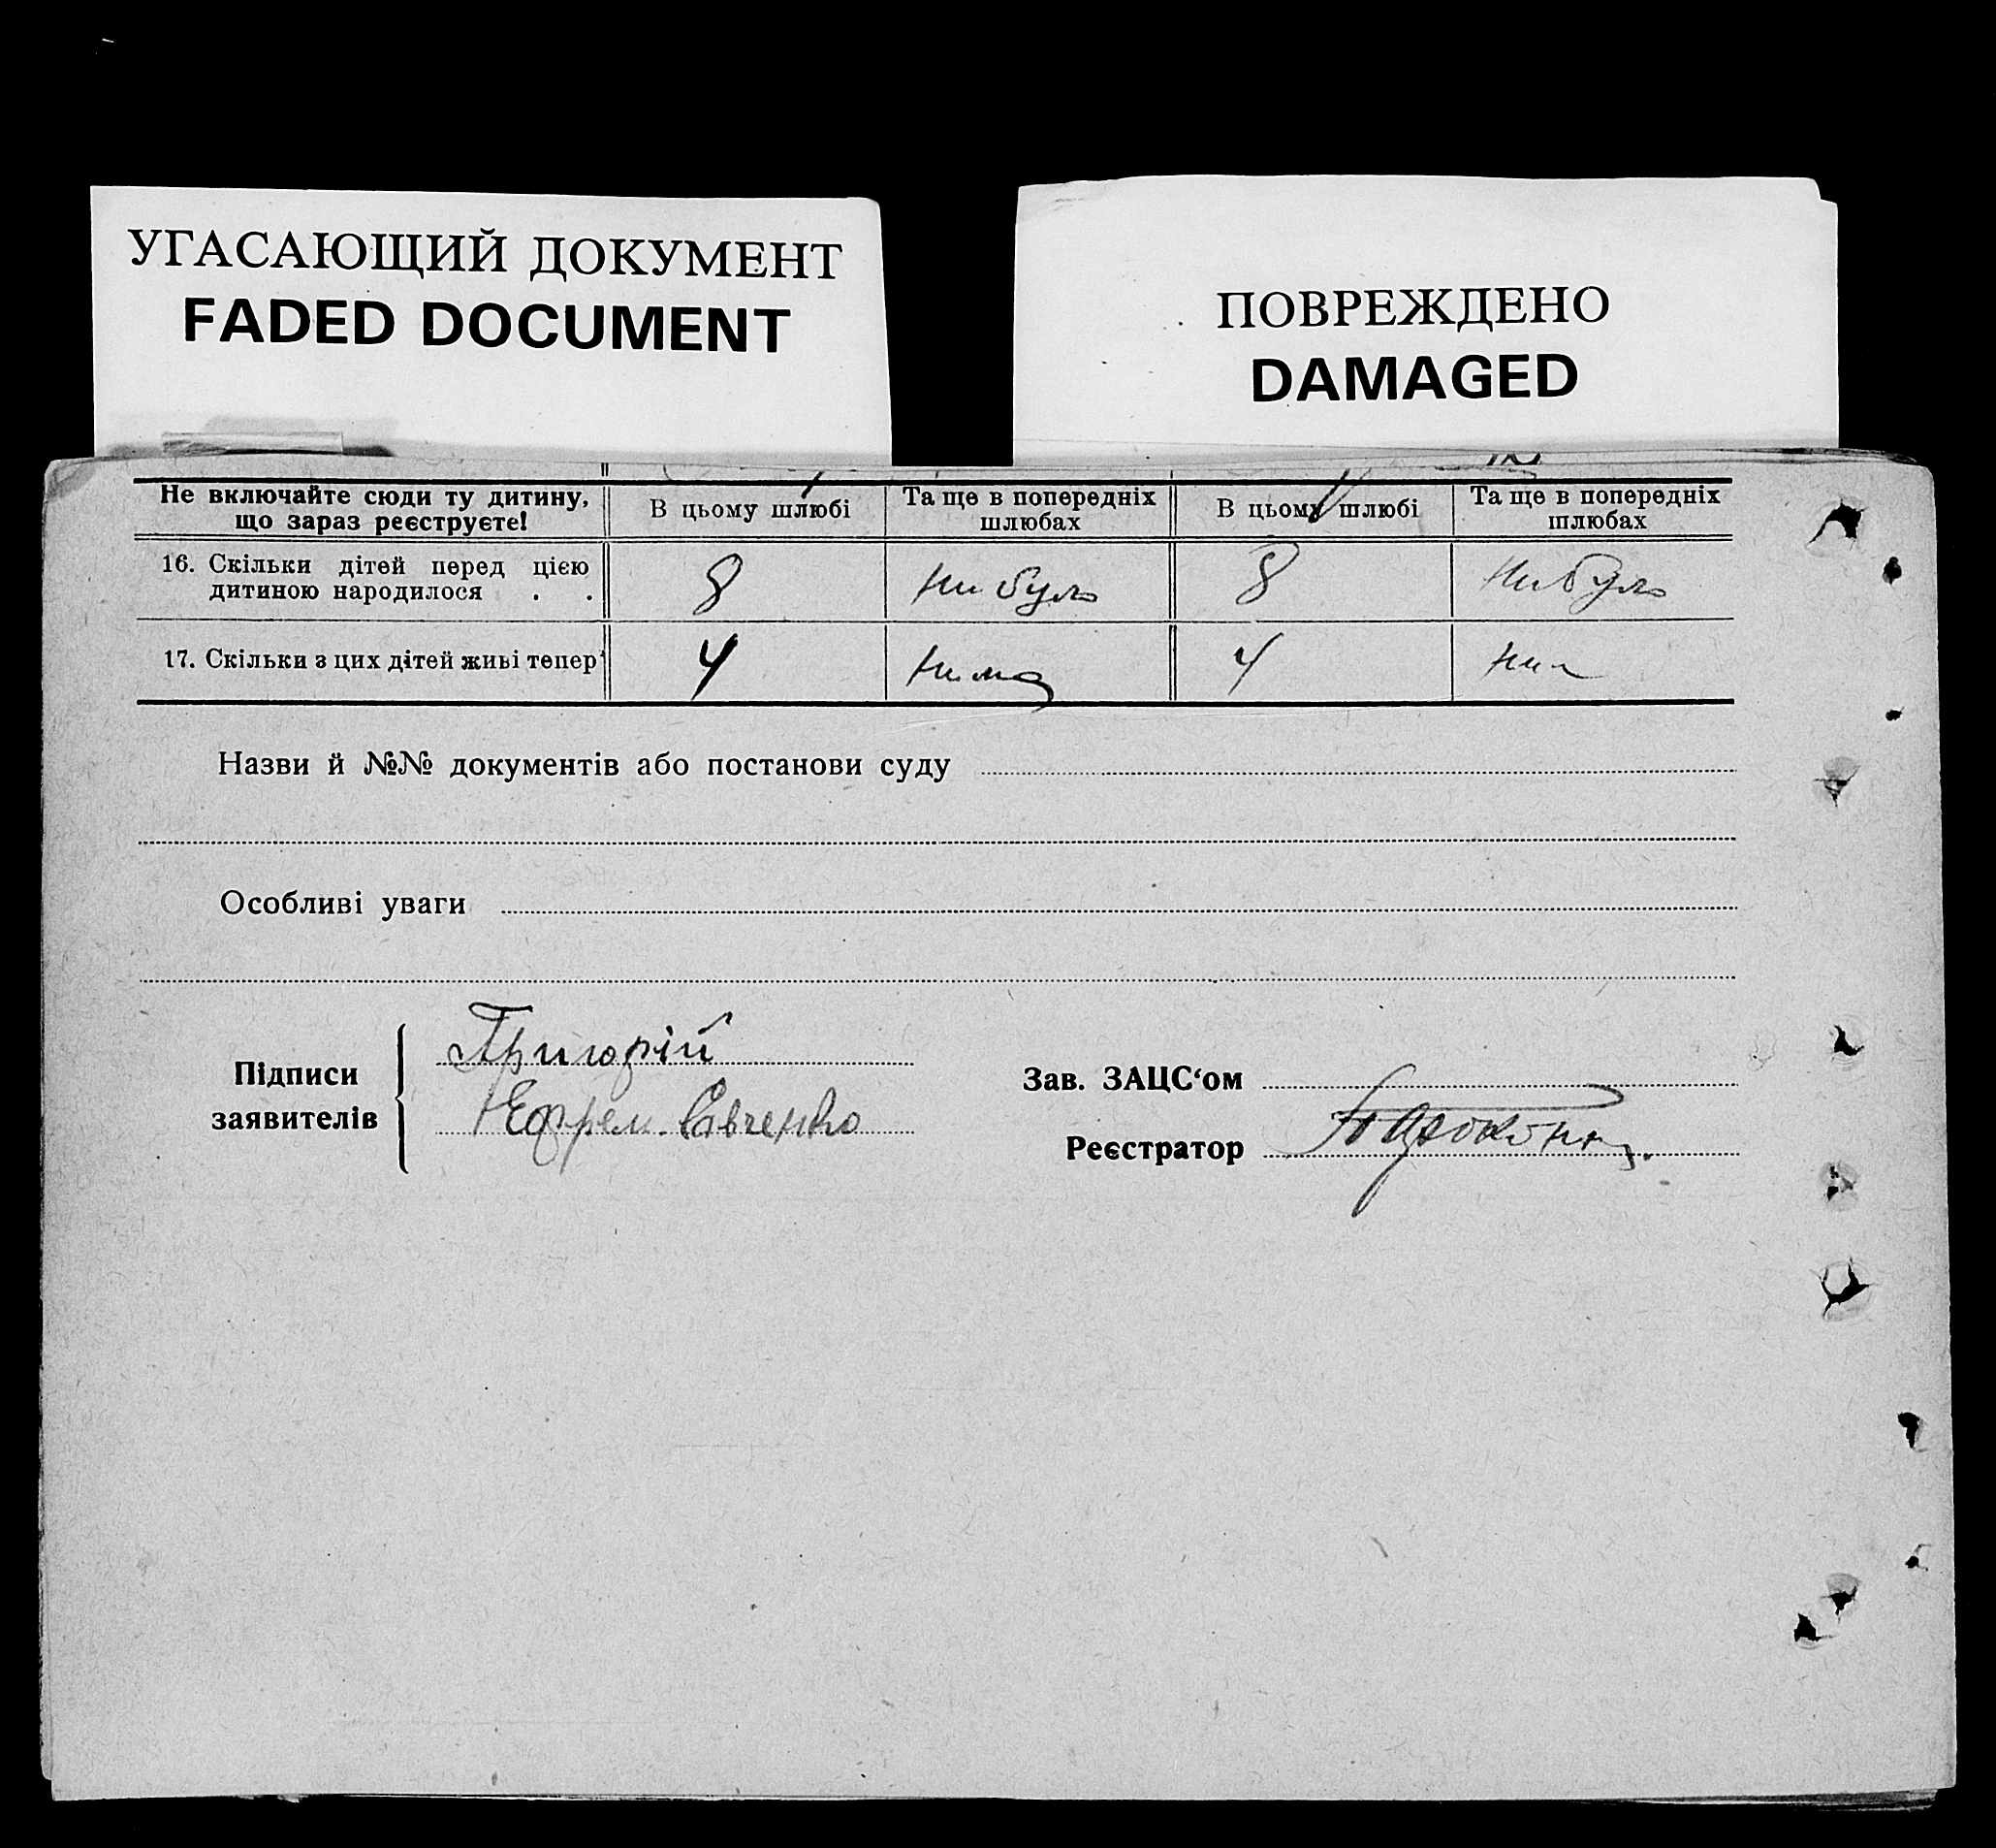 УГАСАЮЩИЙ ДОКУМЕНТ
FADED DOCUMENT
ПОВРЕЖДЕНО
DAMAGED
Не включайте сюди ту дитину, що зараз реєструєте!
В цьому шлюбі
Та ще в попередніх шлюбах
В цьому шлюбі
Та ще в попередніх шлюбах
16. Скільки дітей перед цією дитиною народилося . .
8
Ни було
8
Ни було
17. Скільки з цих дітей живі тепер
4
Нима
4
Назви й №№ документів або постанови суду
Особливі уваги
Підписи заявителів
Григорій
Єфрем. Савченко
Зав. ЗАЦС‘ом
Реєстратор